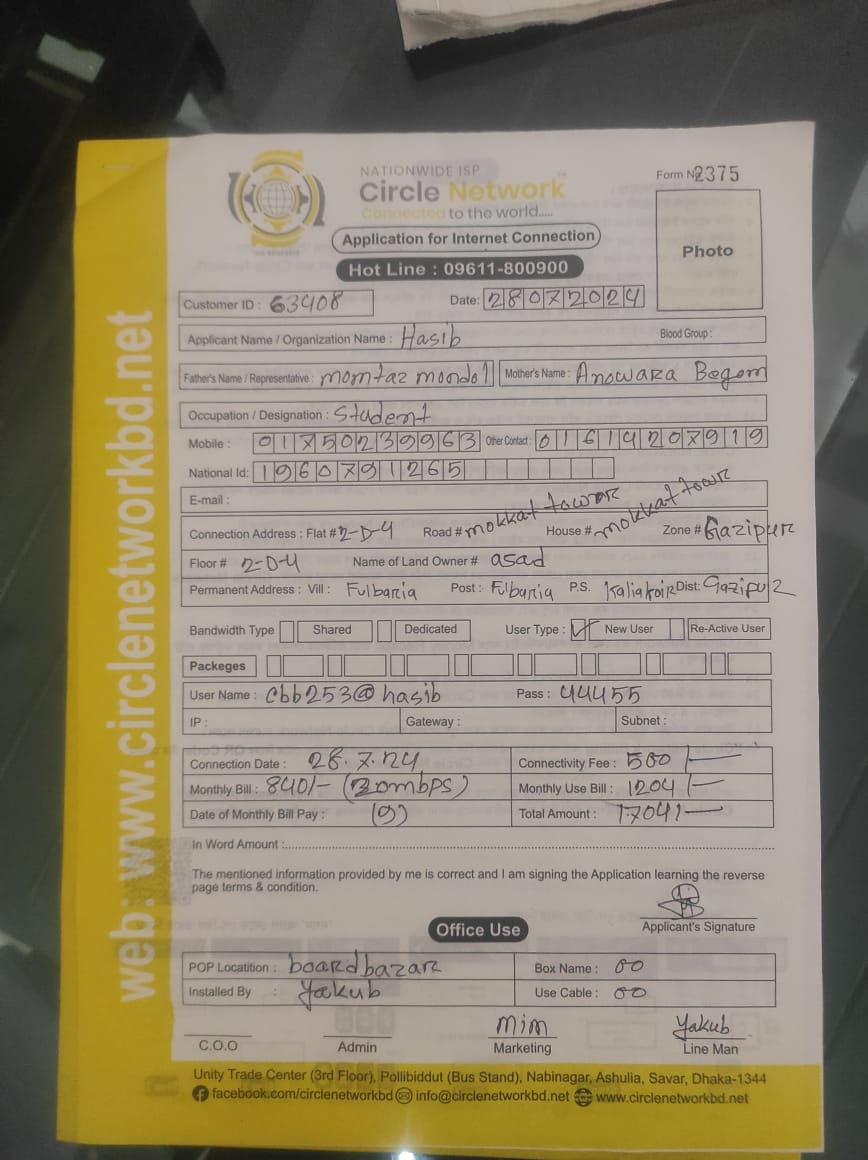 NATIONWIDE ISP
Circle Network
Connected to the world.....
Form No 2375
Application for Internet Connection
Photo
Hot Line : 09611-800900
Customer ID : 63408 Date: 28072024
Applicant Name / Organization Name : Hasib Blood Group :
Father's Name / Representative : momtaz mondol Mother's Name : Anowara Begom
Occupation / Designation : Student
Mobile : 01750239963 Other Contact : 01614207919
National Id: 1960791265
E-mail :
Connection Address : Flat # 2-D-4 Road # mokkat towor House # mokkat towr Zone # Gazipur
Floor # 2-D-4 Name of Land Owner # asad
Permanent Address : Vill : Fulbaria Post : Fulbaria P.S. Kaliakoir Dist: Gazipur
Bandwidth Type Shared Dedicated User Type : New User Re-Active User
Packeges
User Name : cbb253@hasib Pass : 44455
IP : Gateway : Subnet :
Connection Date : 28.7.24 Connectivity Fee : 500/-
Monthly Bill : 840/- (20mbps) Monthly Use Bill : 1204/-
Date of Monthly Bill Pay : (9) Total Amount : 1704/-
In Word Amount :
The mentioned information provided by me is correct and I am signing the Application learning the reverse
page terms & condition.
Applicant's Signature
Office Use
POP Locatition : boardbazar Box Name : 00
Installed By : Yakub Use Cable : 00
mim Yakub
C.O.O Admin Marketing Line Man
Unity Trade Center (3rd Floor), Pollibiddut (Bus Stand), Nabinagar, Ashulia, Savar, Dhaka-1344
facebook.com/circlenetworkbd info@circlenetworkbd.net www.circlenetworkbd.net
web: www.circlenetworkbd.net